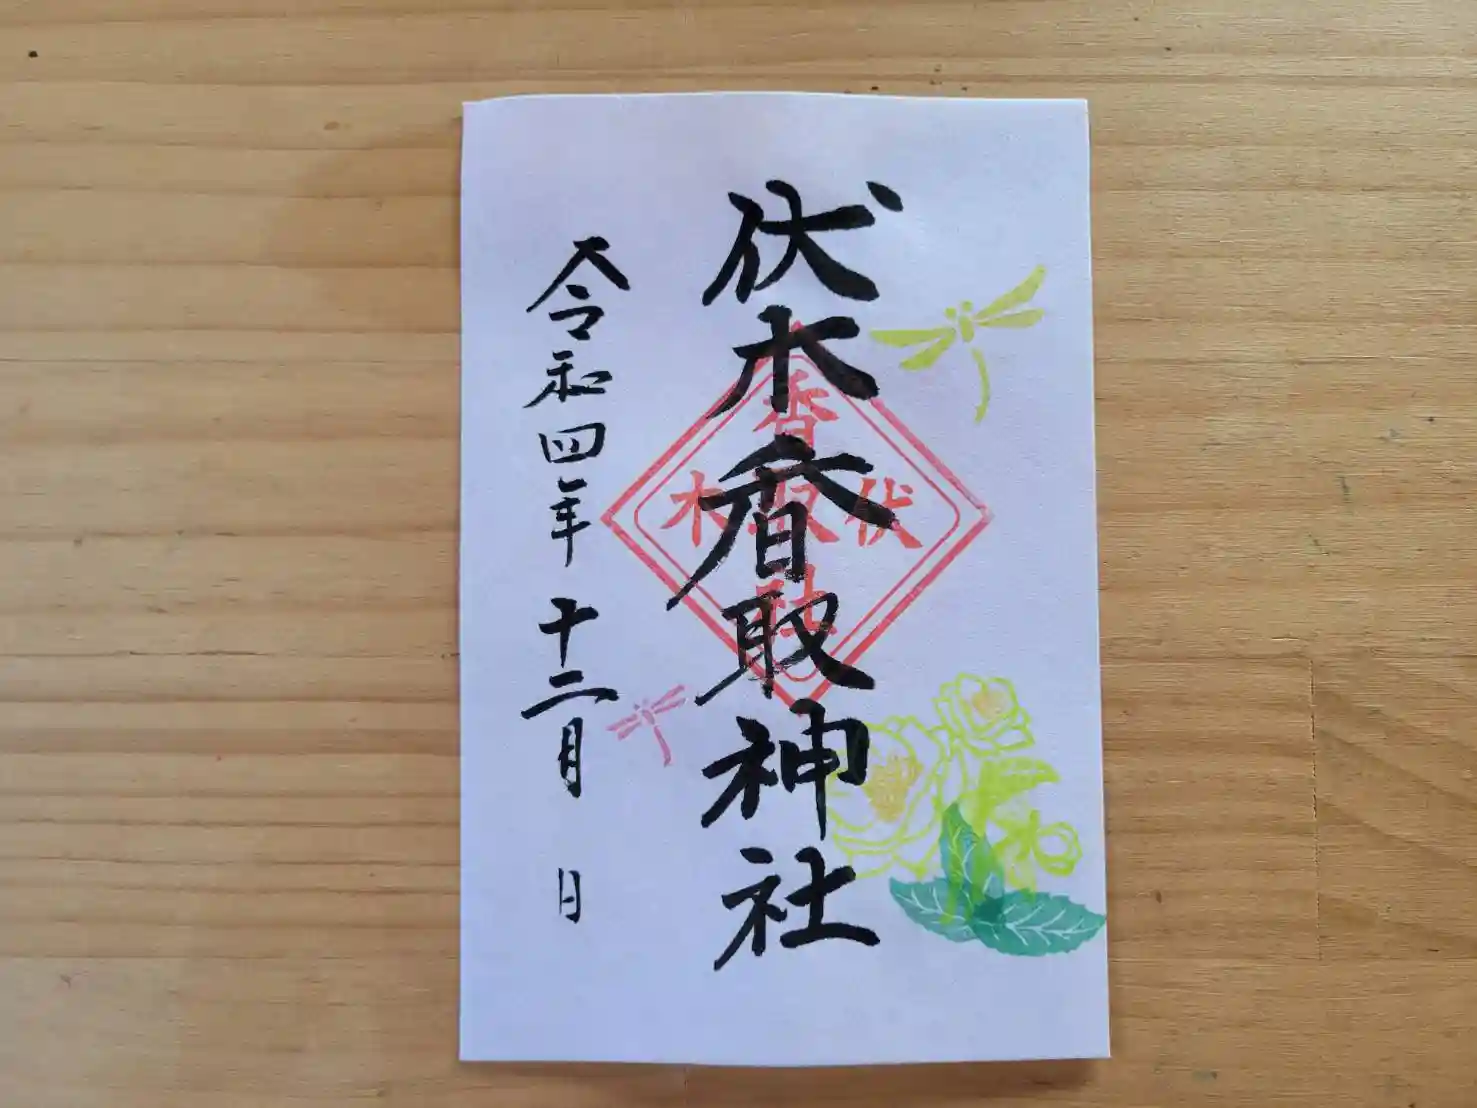 伏木香取神社
令和四年 十二月 日
香
伏取木
社